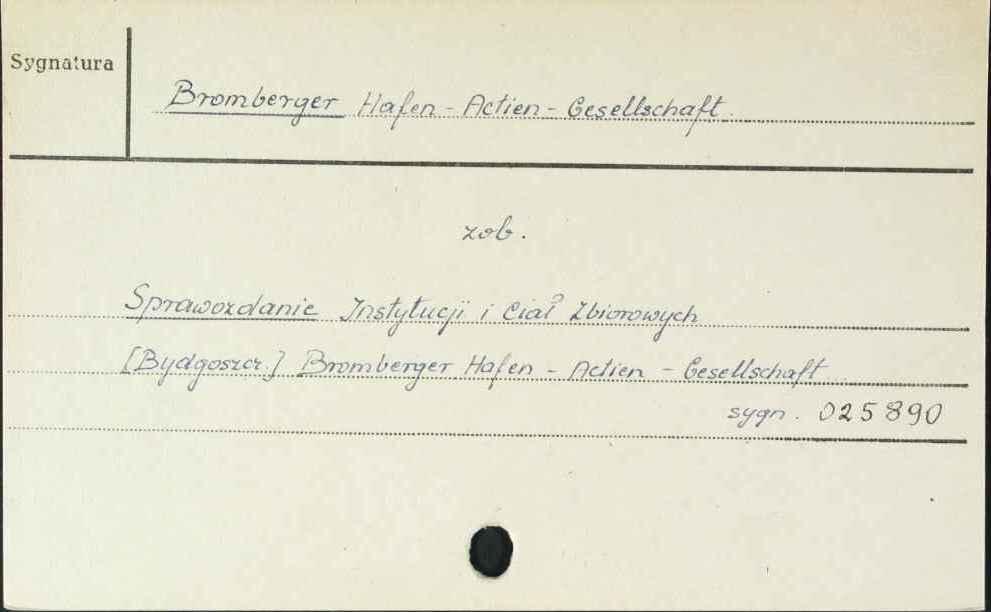 Sygnatura
Bromberger Hafen - Actien - Gesellschaft.
zob.
Sprawozdanie Instytucji i Ciał Zbiorowych
[Bydgoszcz.] Bromberger Hafen - Actien - Gesellschaft
sygn. 025890